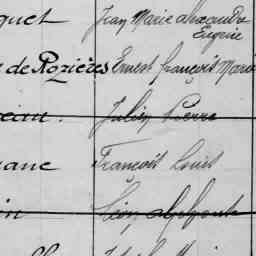 quet Jean Marie Alexandre
Eugène
de Rozières Ernest françois Marie
Julien Pierre
François Louis
Léon Alphonse